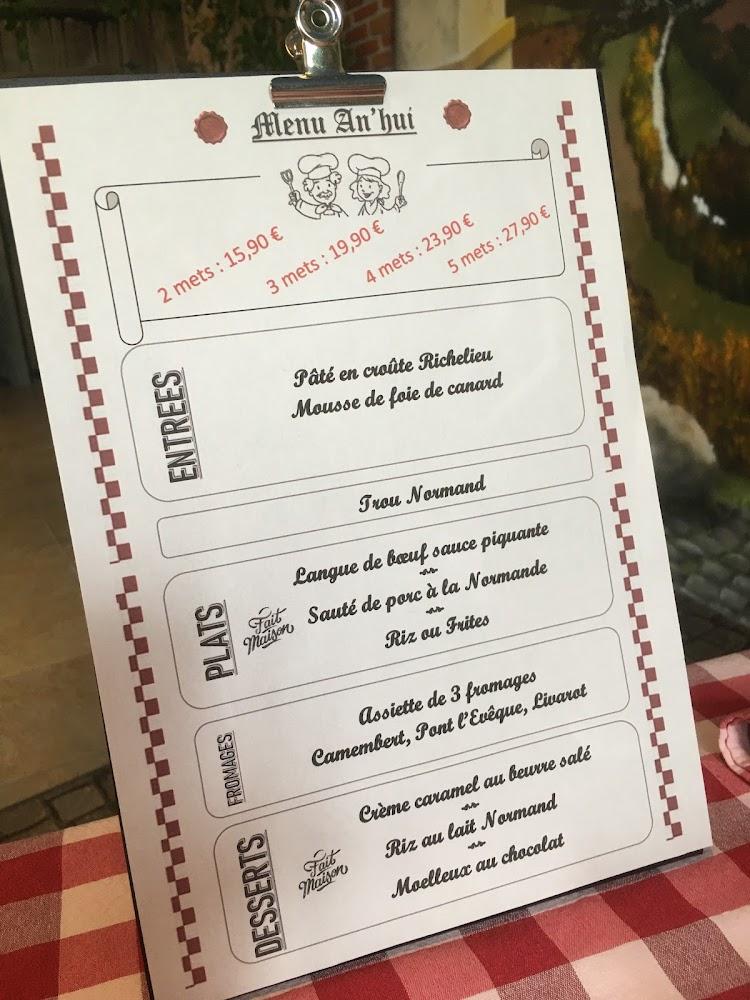 Menu An'hui
2 mets : 15,90 €
3 mets : 19,90 €
4 mets : 23,90 €
5 mets : 27,90 €
ENTREES
Pâté en croûte Richelieu
Mousse de foie de canard
Trou Normand
PLATS
Fait
Maison
Langue de bœuf sauce piquante
Sauté de porc à la Normande
Riz ou Frites
FROMAGES
Assiette de 3 fromages
Camembert, Pont l'Evêque, Livarot
DESSERTS
Fait
Maison
Crème caramel au beurre salé
Riz au lait Normand
Moelleux au chocolat